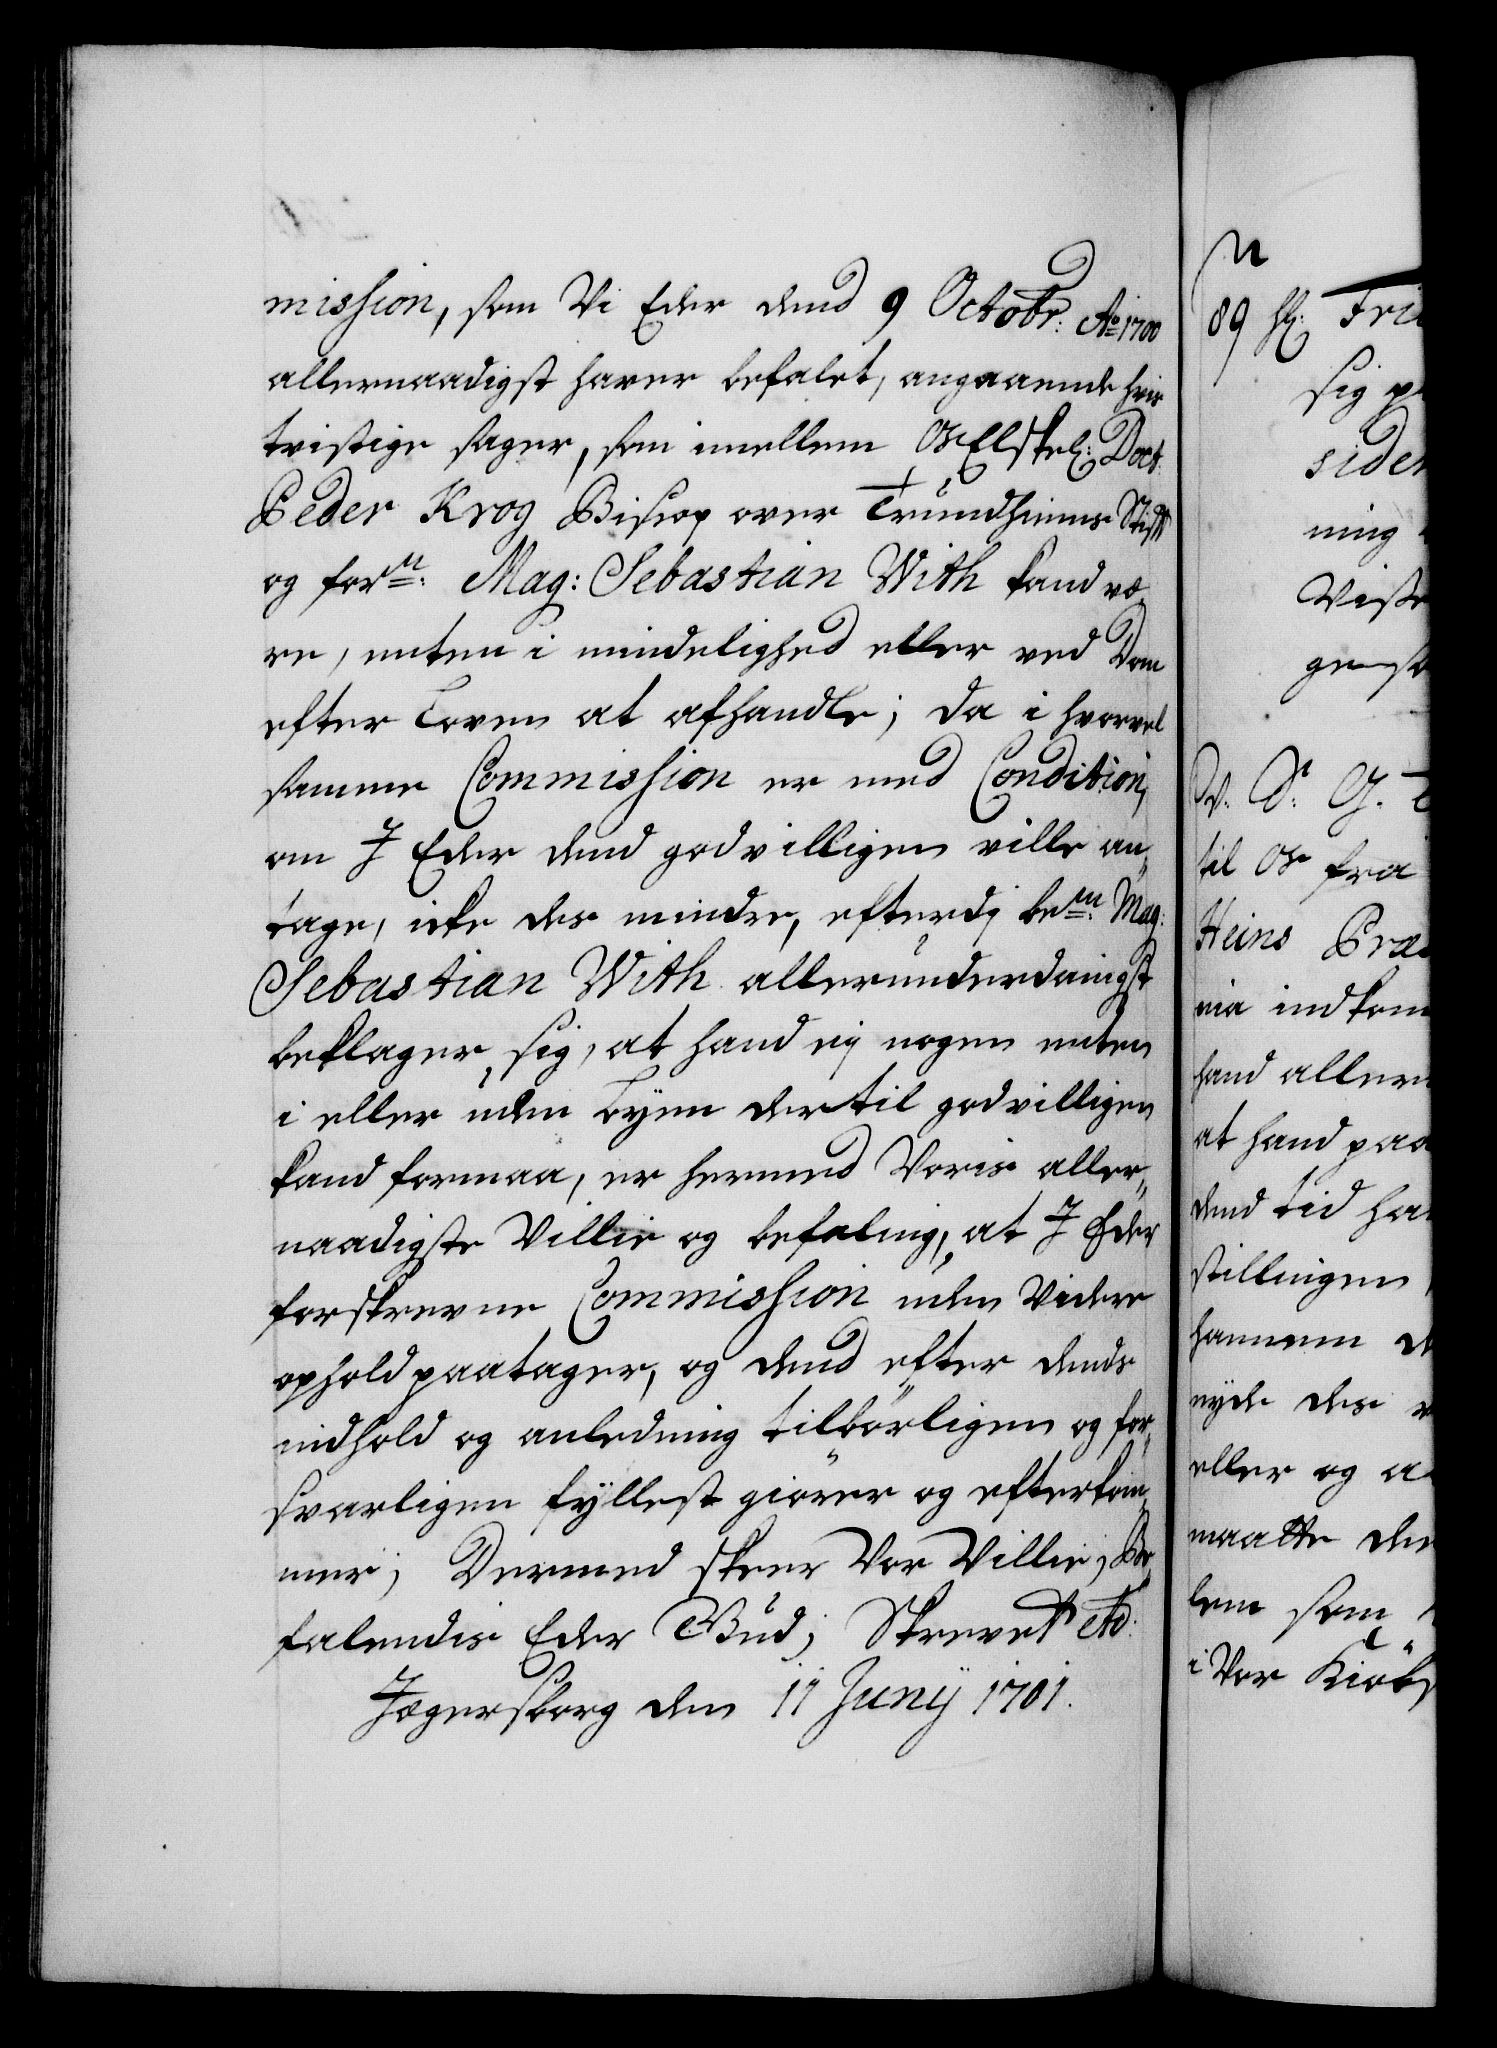 mission, som Vi Eder dend 9 Octobr: Ao 1700
allernaadigst haver befalet, angaaende hvis
tvistige sager, som imellem Os Elskel: Doct.
Peder Krog Biskop over Trundhiems Stift
og forn: Mag: Sebastian With kand væ„
re, enten i mindelighed eller ved Dom
efter Loven at afhandle; da i hvorvel
samme Commission er med Condition,
om I Eder dend godvilligen ville an„
tage, icke des mindre, efterdj bem: Mag:
Sebastian With allerunderdanigst
beklager sig, at hand ej nogen enten
i eller uden byen dertil godvilligen
kand formaa, er hermed Voris aller„
naadigste Villie og befaling, at I Eder
forskrevne Commission uden Videre
ophold paatager, og dend efter dends
indhold og anledning tilbörligen og for„
svarligen fyllest giörer og efterkom„
mer; Dermed skeer Vor Villie, Be„
falendis Eder Gud; Skrevet etc:
Jægersborg den 11 Junij 1701.
N
89 hr: Fri
sig p
siden
ning
Visse
V. S. G. T
til Os fra
Heins Præ
nia indkom
hand aller
at hand paa
dend tid ha
stillingen
hannem de
nyde des
eller og a
maatte den
lem som
i Vor Kiöb